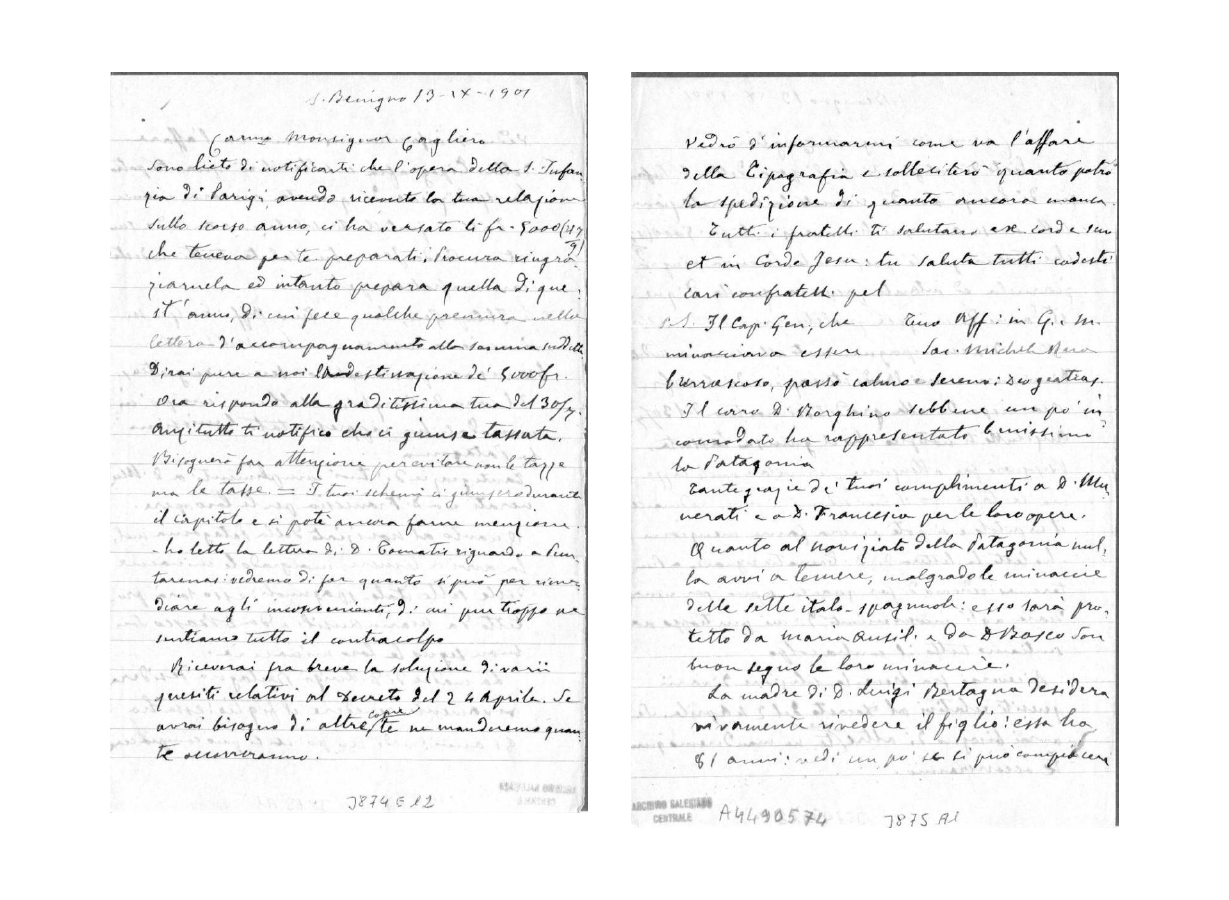 S. Benigno 13-IX-1901
Carmo Monsignor Cagliero
Sono lieto di notificarti che l'opera della S. Infan-
zia di Parigi avendo ricevuto la tua relazione
sullo scorso anno, ci ha versato li fr. 5000 (
che teneva per te preparati. Procura ringra-
ziarnela ed intanto prepara quella di que-
st'anno, di cui fece qualche premura nella
lettera d'accompagnamento alla somma suddetta
Dirai pure a noi la destinazione de' 5000 fr.
Ora rispondo alla graditissima tua del 30/7.
Anzitutto ti notifico che ci giunse tassata.
Bisognerà far attenzione per evitare non le tazze
ma le tasse. = I tuoi schemi ci giunsero durante
il capitolo e si potè ancora farne menzione.
- ho letto la lettera di D. Tomatis riguardo a Pun-
tarenas: vedremo di far quanto si può per rime-
diare agli inconvenienti, di cui pur troppo ne
sentiamo tutto il contracolpo
Riceverai fra breve la soluzione di varii
quesiti relativi al Decreto del 24 Aprile. Se
avrai bisogno di altre copie te ne manderemo quan-
te occorreranno.
J874E12
ARCHIVIO SALESIANO
CENTRALE
Vedrò d'informarmi come va l'affare
della Tipografia e solleciterò quanto potrò
la spedizione di quanto ancora manca.
Tutti i fratelli ti salutano ex corde suo
et in Corde Jesu: tu saluta tutti codesti
cari confratelli pel
P.S. Il Cap. Gen. che Tuo Aff. in G. e M.
minacciava essere Sac. Michele Rua
burrascoso, passò calmo e sereno: Deo gratias.
Il caro D. Borghino sebbene un po' in
comodato ha rappresentato benissimo
la Patagonia
Tante grazie de' tuoi complimenti a D. Mu
nerati e a D. Francesia per le loro opere.
Quanto al noviziato della Patagonia nul-
la avvi a temere, malgrado le minaccie
delle sette italo-spagnuole: esso sarà pro-
tetto da Maria Ausil. e da D Bosco Son
buon segno le loro minaccie.
La madre di D. Luigi Bertagna desidera
vivamente rivedere il figlio: essa ha
81 anni: vedi un po' se si può compiacere
ARCHIVIO SALESIANO
CENTRALE
A4490574
J875A1